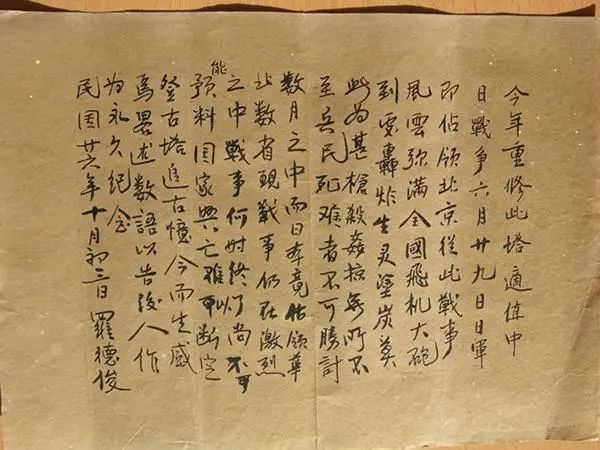 今年重修此塔適值中
日戰争六月廿九日日軍
即佔領北京從此戰事
風雲弥满全國飛机大砲
到處轟炸生灵塗炭莫
此為甚槍殺姦掠無所不
至兵民死难者不可勝計
数月之中而日本竟佔領華
北数省現戰事仍在激烈
之中戰事何时终了尚不
能預料国家興亡难以断定
登古塔追古憶今而生感
焉畧述数語以告後人作
为永久纪念
民国廿六年十月初三日羅德俊